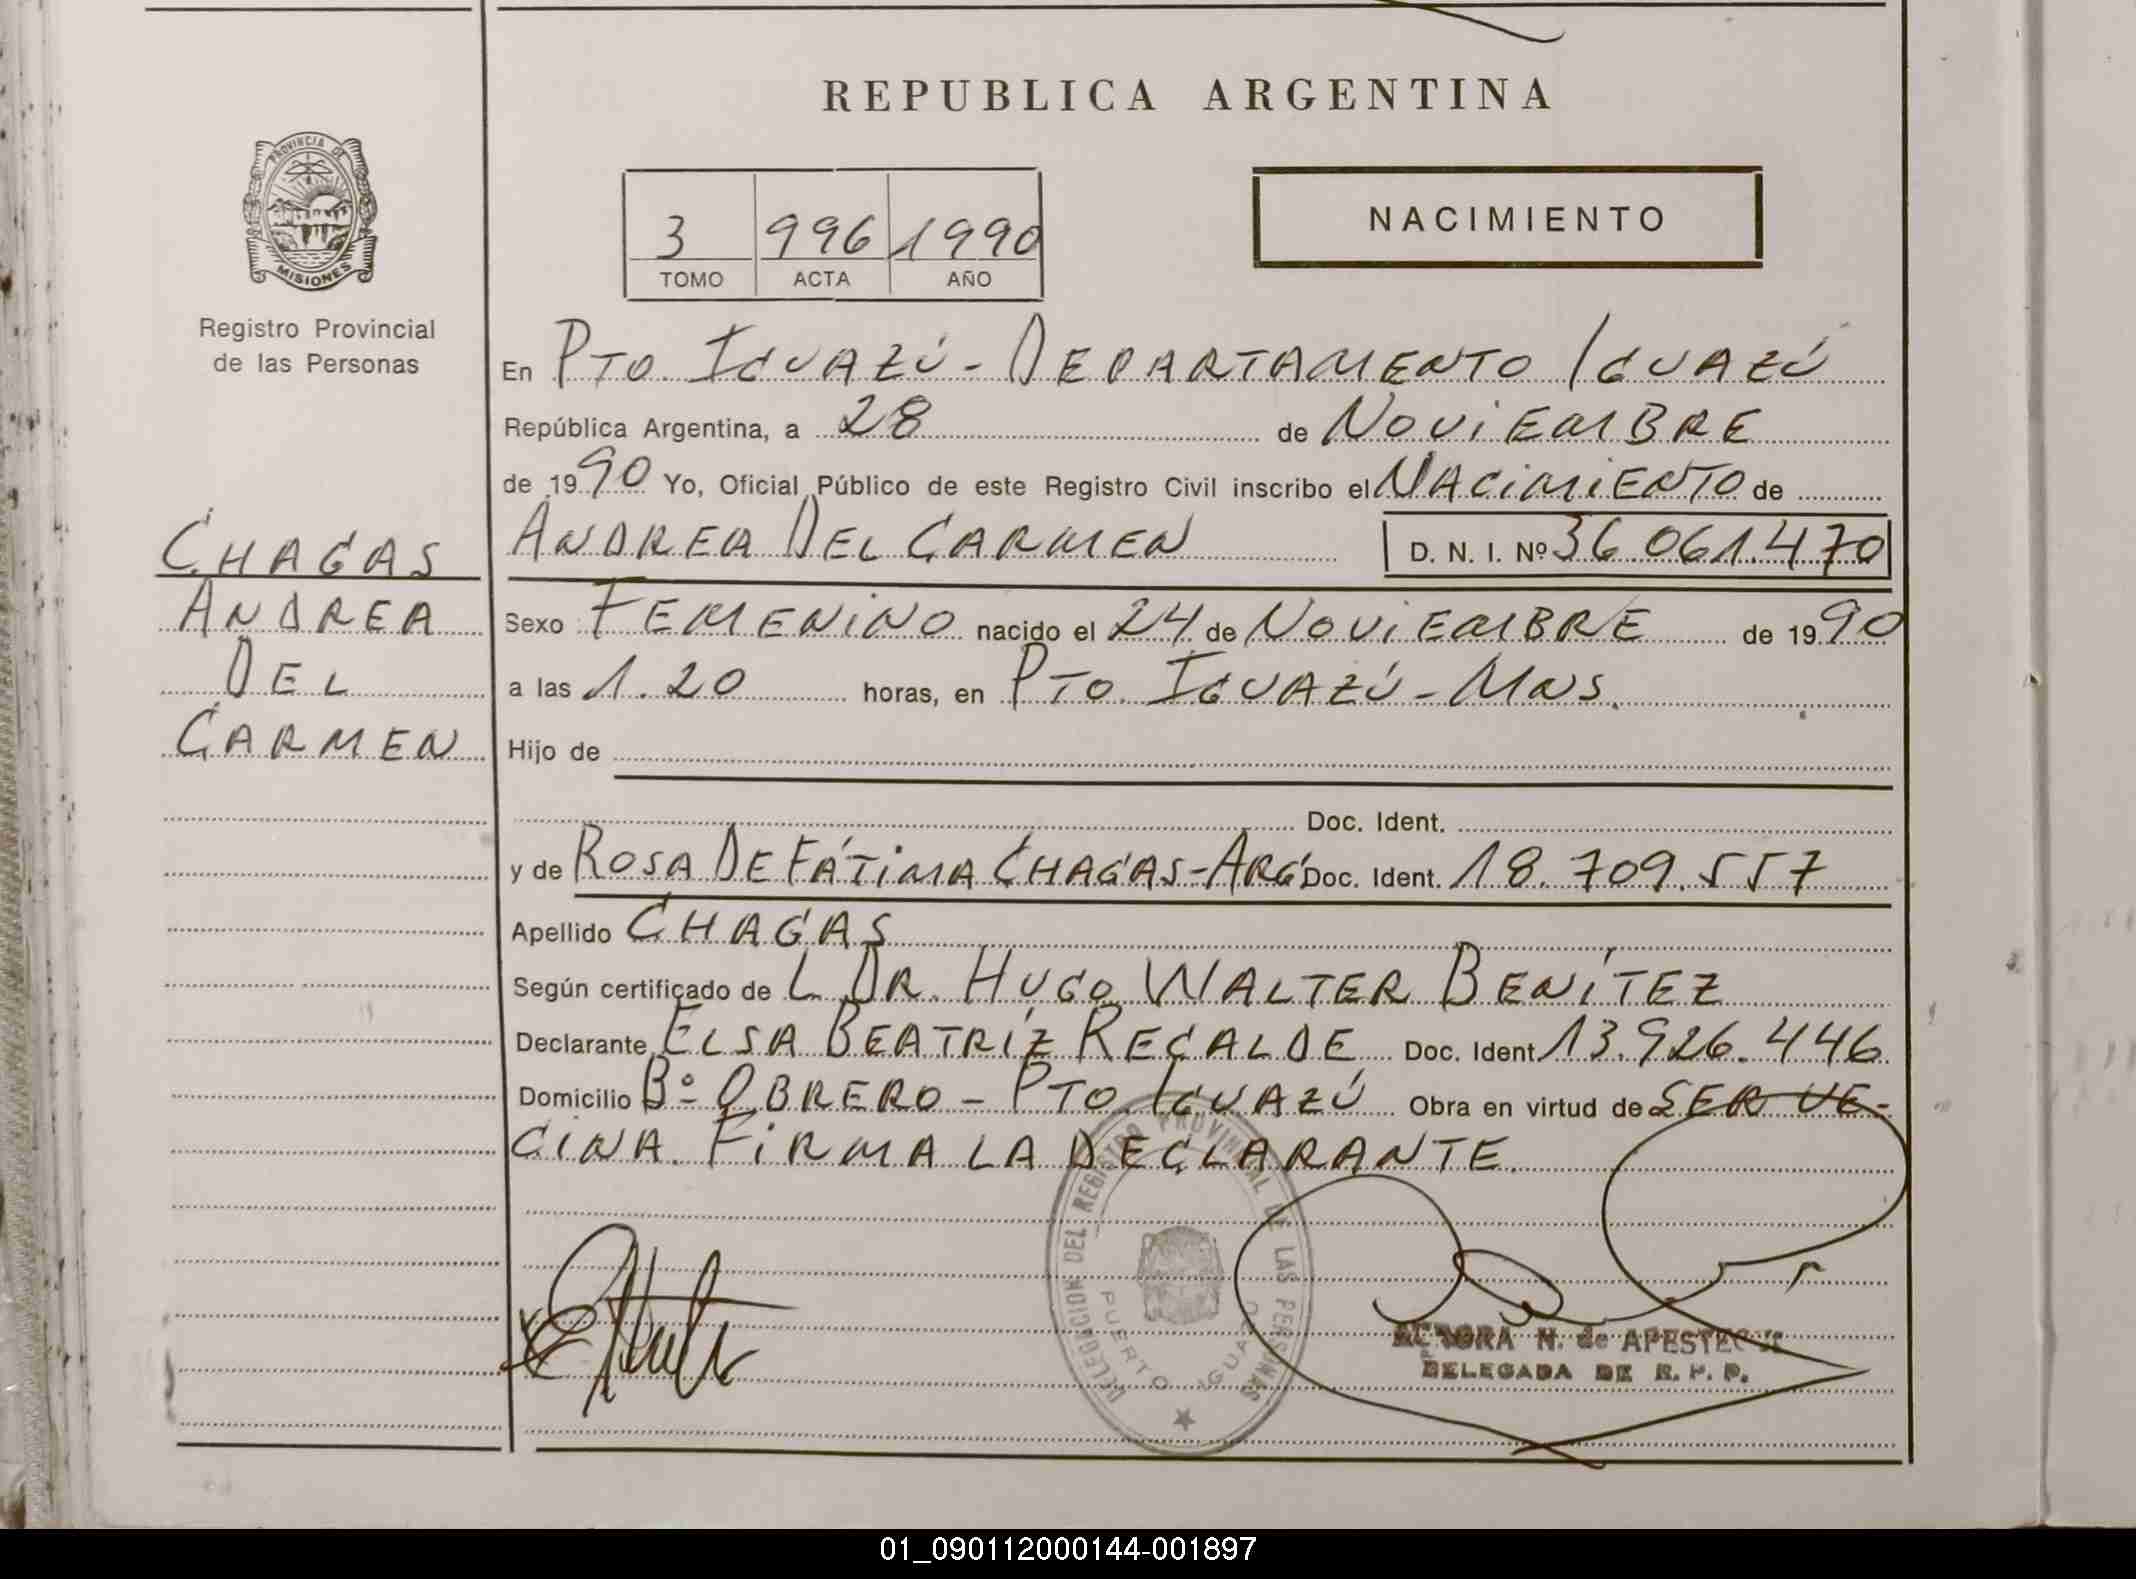 REPUBLICA ARGENTINA
PROVINCIA DE
MISIONES
Registro Provincial
de las Personas
3 996 1990
TOMO ACTA AÑO
NACIMIENTO
En PTO. IGUAZÚ - DEPARTAMENTO IGUAZÚ
República Argentina, a 28 de NOVIEMBRE
de 1990 Yo, Oficial Público de este Registro Civil inscribo el NACIMIENTO de
ANDREA DEL CARMEN D. N. I. Nº 36.061.470
CHAGAS
ANDREA
DEL
CARMEN
Sexo FEMENINO nacido el 24 de NOVIEMBRE de 1990
a las 1.20 horas, en PTO. IGUAZÚ - MNS.
Hijo de
Doc. Ident.
y de ROSA DE FÁTIMA CHAGAS - ARG Doc. Ident. 18.709.557
Apellido CHAGAS
Según certificado de L DR. HUGO WALTER BENÍTEZ
Declarante ELSA BEATRÍZ RECALDE Doc. Ident 13.926.446
Domicilio Bº OBRERO - PTO. IGUAZÚ Obra en virtud de SER VE-
CINA. FIRMA LA DECLARANTE.
DELEGACION DEL REGISTRO PROVINCIAL DE LAS PERSONAS
PUERTO IGUAZU
N. de
DELEGADA DE R. P. P.
01_090112000144-001897